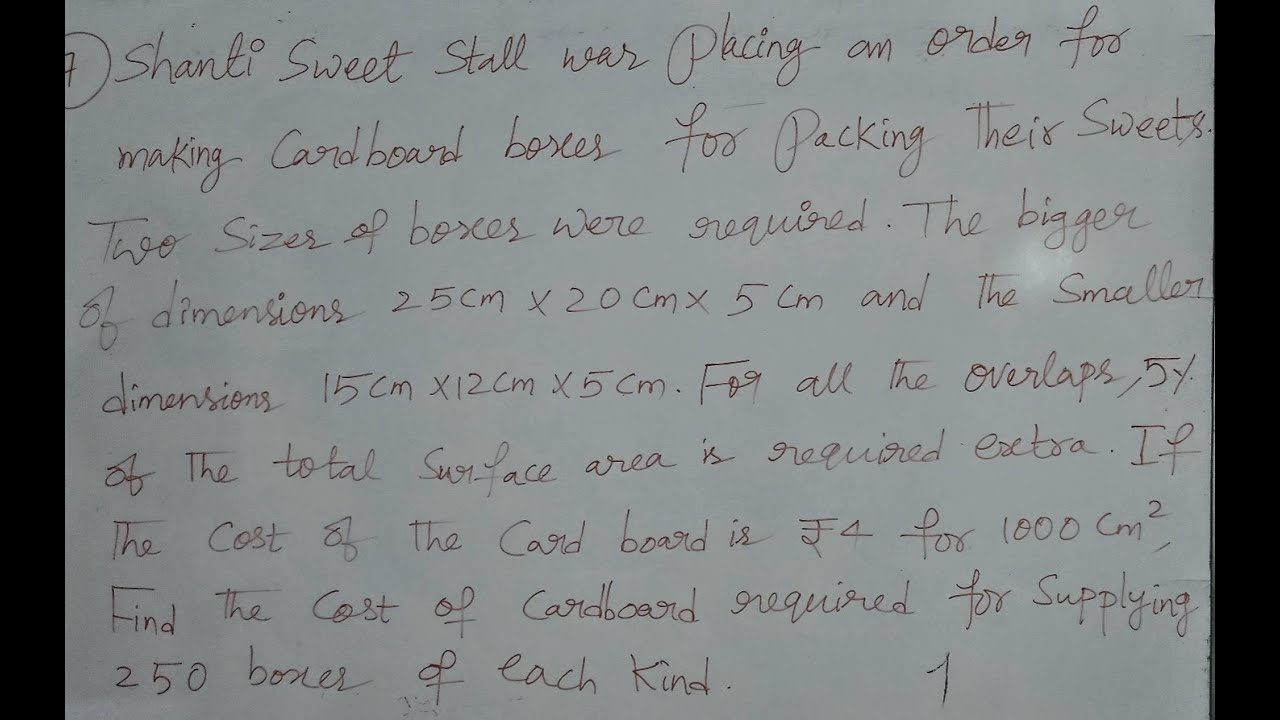 7) Shanti Sweet Stall was Placing an order for
making Cardboard boxes for Packing Their Sweets.
Two Sizes of boxes were required. The bigger
of dimensions 25cm x 20cm x 5cm and the Smaller
dimensions 15cm x 12cm x 5cm. For all the overlaps, 5%
of The total Surface area is required extra. If
The Cost of the Card board is ₹4 for 1000 cm²,
Find the Cost of Cardboard required for Supplying
250 boxes of each Kind. 1